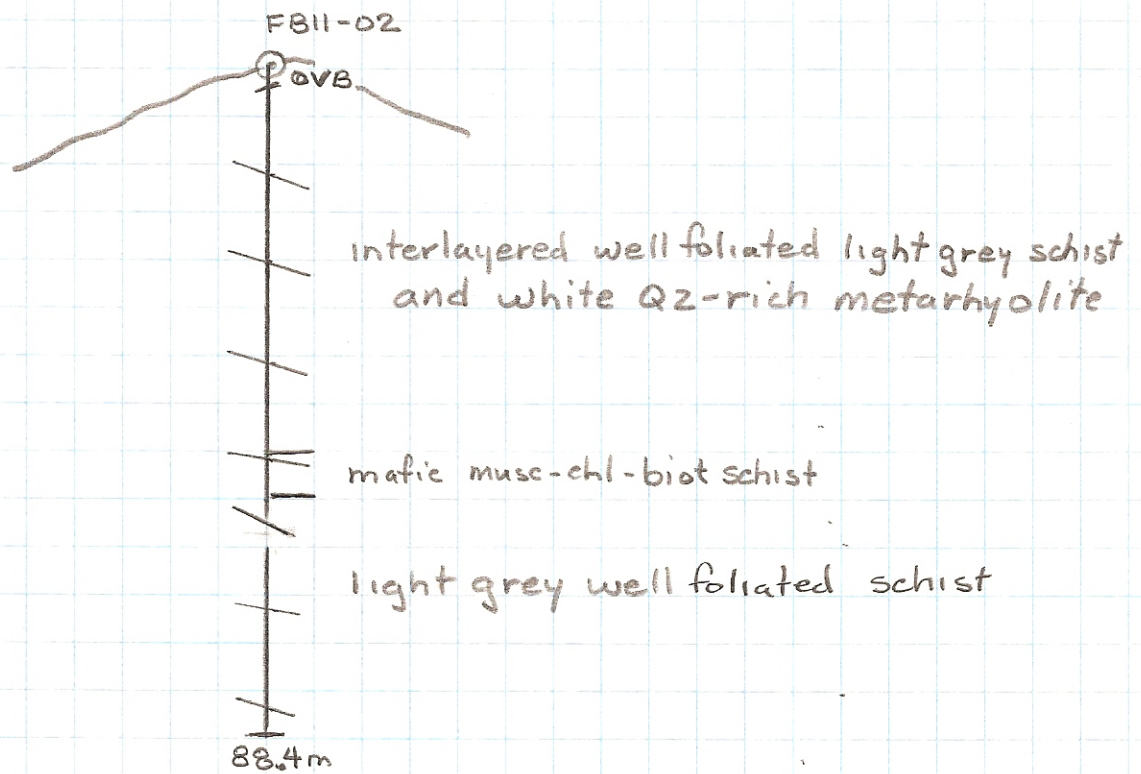 FB11-02
OVB
interlayered well foliated light grey schist
and white Qz-rich metarhyolite
mafic musc-chl-biot schist
light grey well foliated schist
88.4m